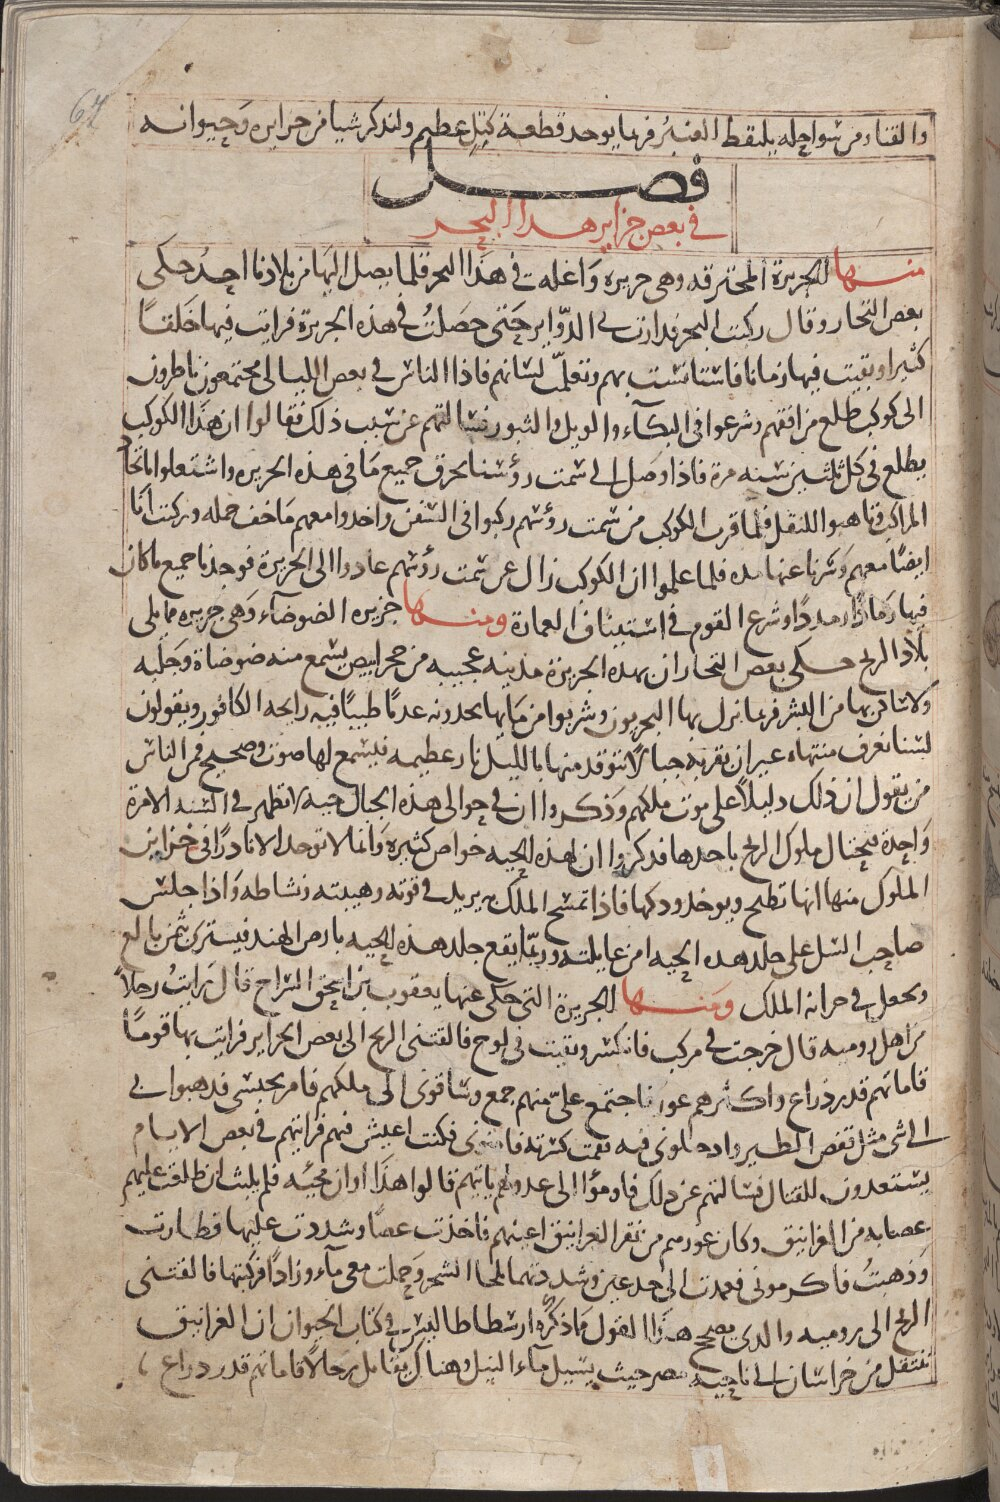 67
والقناء من سواحله يلتقط العنبر فربما يوجد قطعة كبتل عظيم ولنذكر شيا من جزايره وحيوانه
فصل
في بعض جزاير هذا البحر
منها الجزيرة المحترقه وهى جزيره واغله في هذا البحر قلما يصل اليها من بلادنا احد حكى
بعض التجار وقال ركبت البحر فدارت لي الدواير حتى حصلت في هذه الجزيرة فرايت فيها خلقا
كثيرا وبقيت فيها زمانا فاستانست بهم وتعلمت لسانهم فاذا الناس في بعض الليالى مجتمعون ناظرون
الى كوكب طلع من افقهم وشرعوا فى البكاء والويل والثبور فسالتهم عن سبب ذلك فقالوا ان هذا الكوكب
يطلع في كل ثلثين سنه مرة فاذا وصل الى سمت رؤسنا يحرق جميع ما فى هذه الجزيره واشتغلوا باتخاذ
المراكب وتاهبوا للنقل فلما قرب الكوكب من سمت رؤسهم ركبوا فى السفن واخذوا معهم ما خف حمله وركبت انا
ايضا معهم وسرنا عنها مده فلما علموا ان الكوكب زال عن سمت رؤسهم عادوا الى الجزيرة فوجدنا جميع ما كان
فيها رمادا رمددا وشرع القوم في استيناف العمارة ومنها جزيره الضوضاء وهى جزيره مما يلي
بلاد الزنج حكى بعض التجار ان بهذه الجزيرة مدينه عجيبه من حجر ابيض يسمع منه ضوضاة وجلبه
ولا ساكن بها من البشر فربما نزل بها البحريون وشربوا من مايها يجدونه عذبا طيبا فيه رايحه الكافور ويقولون
لسنا نعرف منتهاه غير ان بقربه جبالا تتوقد منها بالليل نار عظيمه فيسمع لها صوت وضجيج فمن الناس
من يقول ان ذلك دليلا على موت ملكهم وذكروا ان في حوالى هذه الجبال حيه لا تظهر في السنه الا مرة
واحدة فيحتال ملوك الزنج باخذها فذكروا ان لهذه الحيه خواص كثيرة وانها لا توجد الا نادرا في خزاين
الملوك منها انها تطبخ ويوخذ ودكها فاذا تمسح الملك به يزيد في قوته وهيبته ونشاطه واذا جلس
صاحب السل على جلد هذه الحيه امن غايلته وربما يقع جلد هذه الحيه بارض الهند فيشترى بثمن بالغ
ويجعل في خزانة الملك ومنها الجزيرة التي حكى عنها يعقوب بن اسحق السراج قال رايت رجلا
من اهل روميه قال خرجت في مركب فانكسر وبقيت في لوح فالقتنى الريح الى بعض الجزاير فرايت بها قوما
قاماتهم قدر ذراع واكثرهم عور فاجتمع على منهم جمع وساقونى الى ملكهم فامر بحبسى فذهبوا بي
الى شى مثل قفص الطير وادخلونى فيه فقمت كسرته فامنونى فكنت اعيش فيهم فرايتهم في بعض الايام
يستعدون للقتال فسالتهم عن ذلك فاومؤا الى عدو لهم ياتيهم قالوا هذا اوان مجيئه فلم يلبث ان طلعت عليهم
عصابه من الغرانيق وكان عورهم من نقر الغرانيق اعينهم فاخذت عصا وشددت عليها فطارت
وذهبت فاكرمونى فعمدت الى جذعين وشددتهما بلحا الشجر وحملت معى ماء وزادا فركبتها فالقتنى
الريح الى روميه والذى يصحح هذا القول ما ذكره ارسطاطاليس في كتاب الحيوان ان الغرانيق
تنتقل من خراسان الى ناحيه مصر حيث يسيل ماء النيل وهناك يقاتل رجالا قاماتهم قدر ذراع